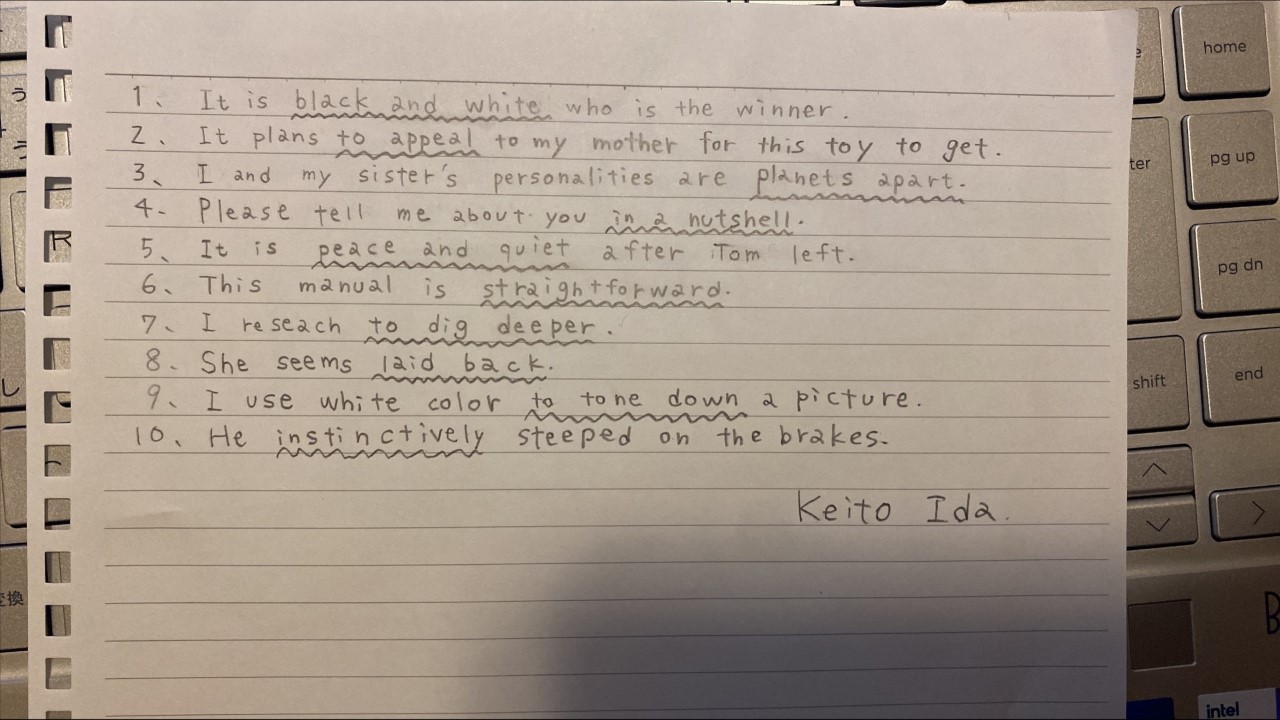 1、 It is black and white who is the winner.
2、 It plans to appeal to my mother for this toy to get.
3、 I and my sister's personalities are planets apart.
4- Please tell me about you in a nutshell.
5、 It is peace and quiet after Tom left.
6、 This manual is straightforward.
7、 I reseach to dig deeper.
8. She seems laid back.
9、 I use white color to tone down a picture.
10、 He instinctively steeped on the brakes.
Keito Ida.
home
pg up
pg dn
end
ter
shift
う
し
R
変換
intel